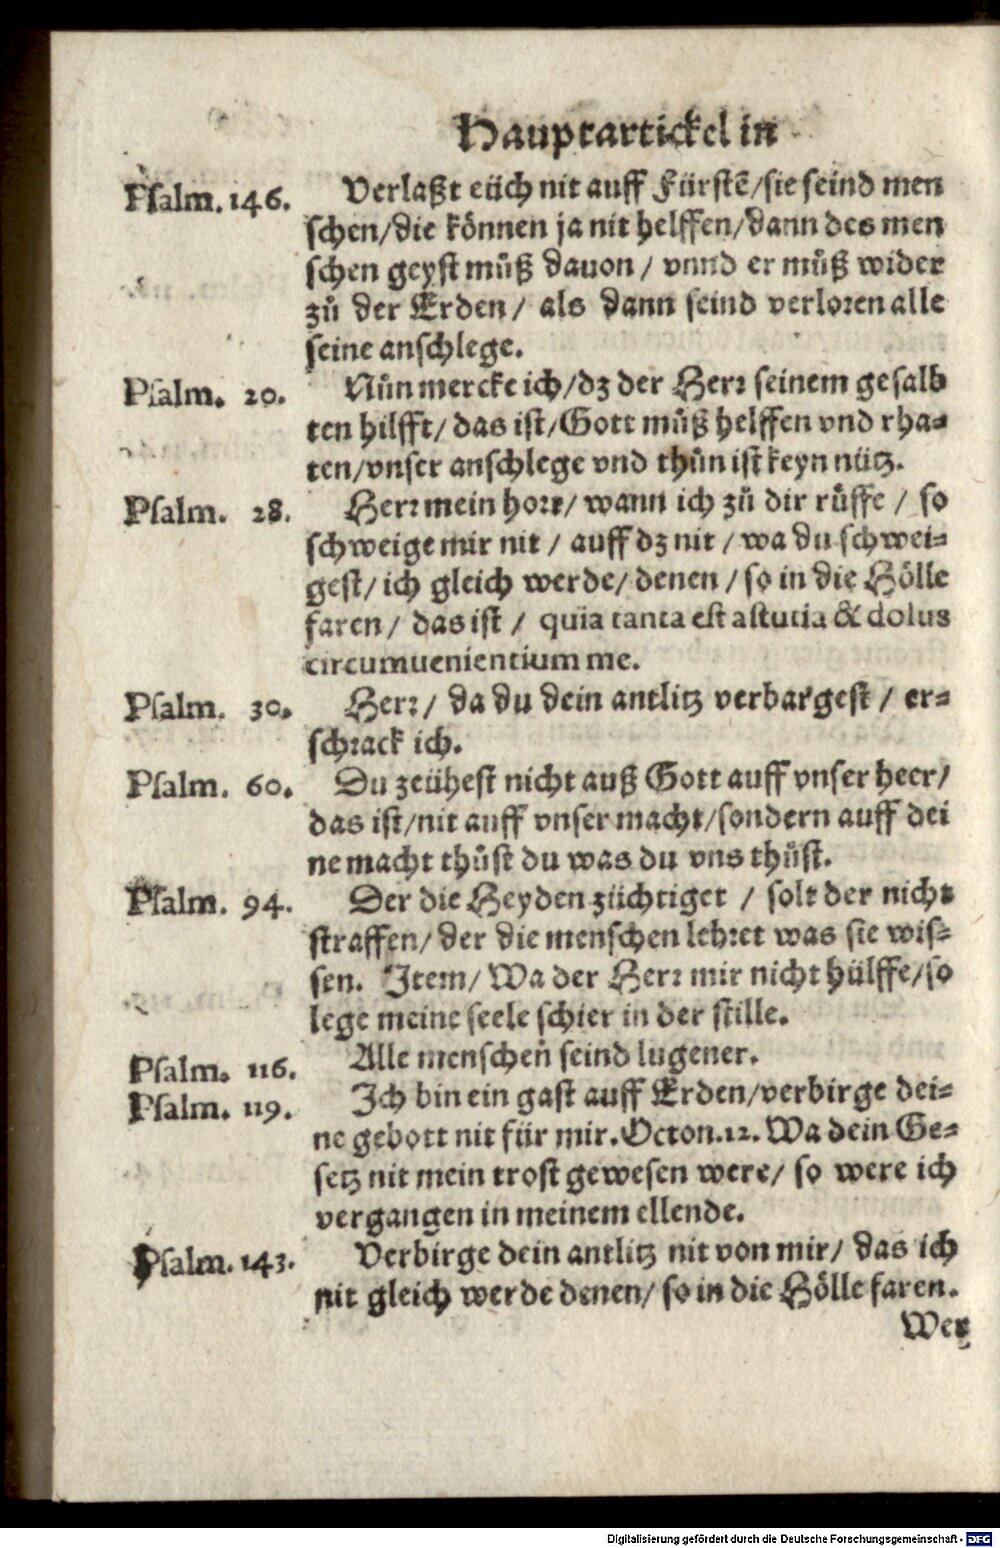 Hauptartickel in
Psalm. 146. Verlaßt eüch nit auff Fürstē/sie seind men
schen/die können ja nit helffen/dann des men
schen geyst můß dauon / vnnd er můß wider
zů der Erden / als dann seind verloren alle
seine anschlege.
Psalm. 20. Nůn mercke ich/dz der Herr seinem gesalb
ten hilfft/ das ist/Gott můß helffen vnd rha-
ten/vnser anschlege vnd thůn ist keyn nütz.
Psalm. 28. Herr mein hort/ wann ich zů dir růffe / so
schweige mir nit / auff dz nit / wa du schwei-
gest/ ich gleich werde/ denen / so in die Hölle
faren / das ist / quia tanta est astutia & dolus
circumuenientium me.
Psalm. 30. Herr / da du dein antlitz verbargest / er-
schrack ich.
Psalm. 60. Du zeühest nicht auß Gott auff vnser heer/
das ist/nit auff vnser macht/sondern auff dei
ne macht thůst du was du vns thůst.
Psalm. 94. Der die Heyden züchtiget / solt der nicht
straffen/ der die menschen lehret was sie wis-
sen. Item/ Wa der Herr mir nicht hülffe/so
lege meine seele schier in der stille.
Psalm. 116. Alle menschen seind lugener.
Psalm. 119. Ich bin ein gast auff Erden/verbirge dei-
ne gebott nit für mir. Octon.12. Wa dein Ge-
setz nit mein trost gewesen were/ so were ich
vergangen in meinem ellende.
Psalm. 143. Verbirge dein antlitz nit von mir/ das ich
nit gleich werde denen/ so in die Hölle faren.
Wer
Digitalisierung gefördert durch die Deutsche Forschungsgemeinschaft - DFG